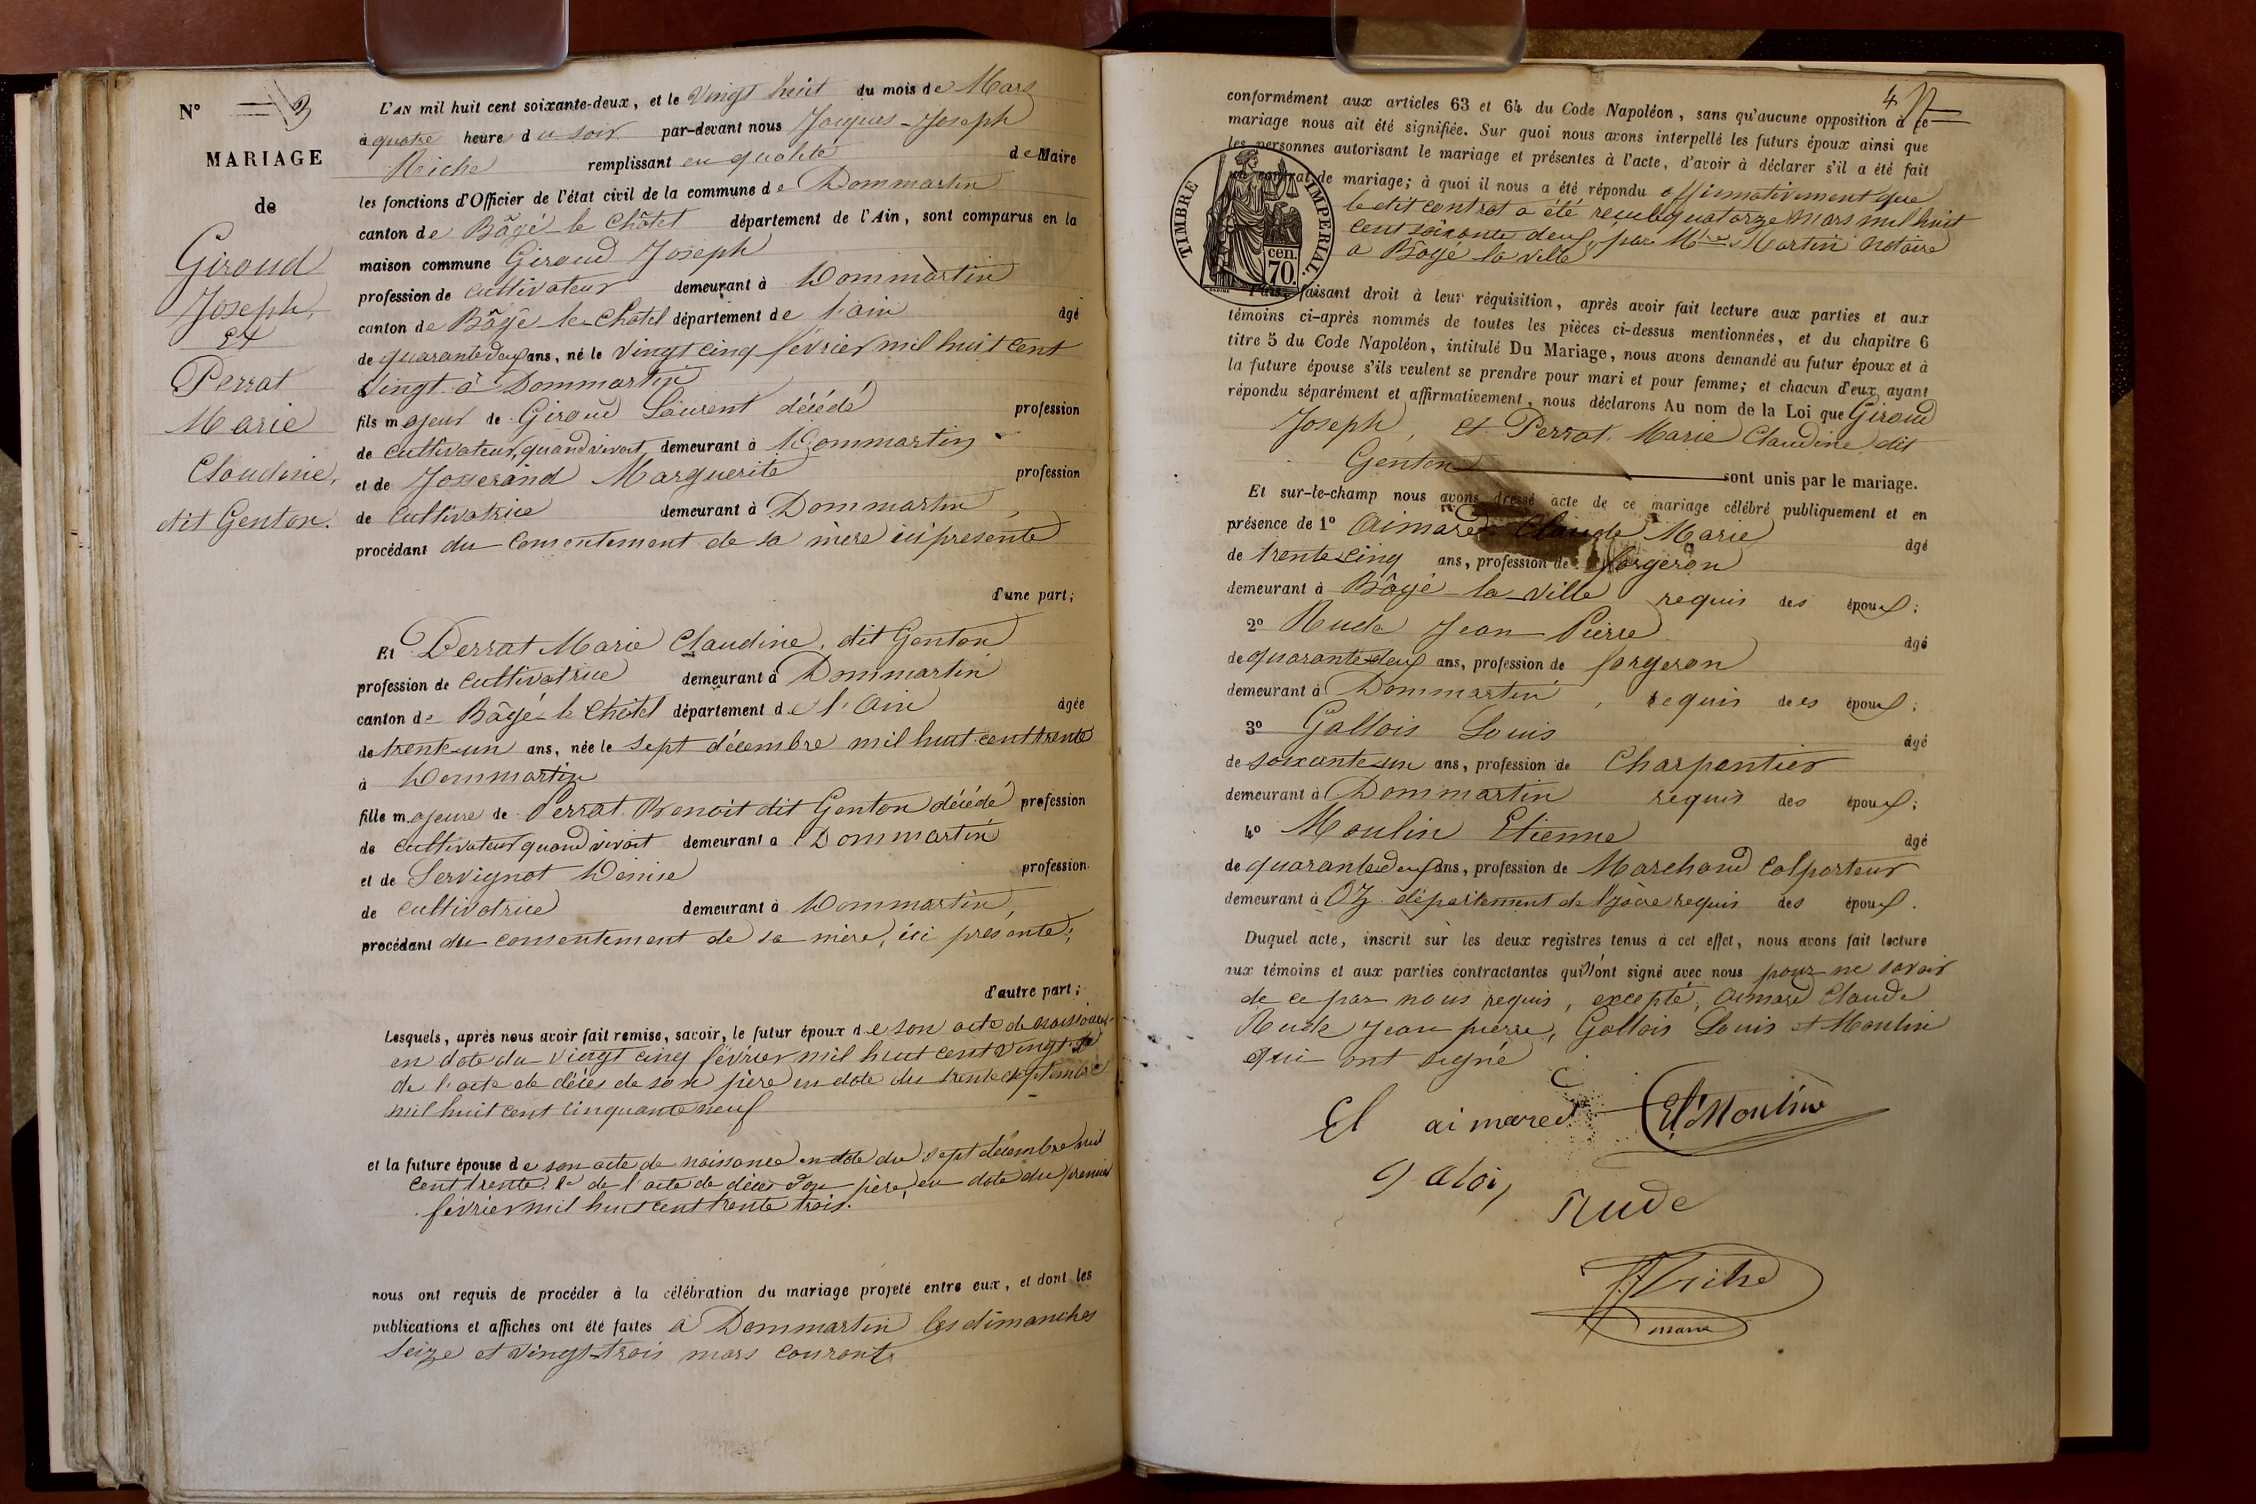 N° 3
MARIAGE
de
Giroud
Joseph,
et
Perrat
Marie
Claudine,
dit Genton.
L'AN mil huit cent soixante-deux, et le Vingt huit du mois de Mars
à quatre heures du soir par-devant nous Jacques-Joseph
Riche remplissant en qualité de Maire
les fonctions d'Officier de l'état civil de la commune de Dommartin
canton de Bâgé-le-Châtel département de l'Ain, sont comparus en la
maison commune Giroud Joseph
profession de cultivateur demeurant à Dommartin
canton de Bâgé-le-Châtel département de l'ain âgé
de quarante deux ans, né le vingt cinq février mil huit cent
vingt à Dommartin
fils majeur de Giroud Laurent décédé profession
de cultivateur quand vivait demeurant à Dommartin
et de Josserand Marguerite profession
de cultivatrice demeurant à Dommartin,
procédant du consentement de sa mère ici présente
d'une part;
Et Perrat Marie Claudine, dit Genton
profession de cultivatrice demeurant à Dommartin
canton de Bâgé-le-Châtel département de l'Ain âgée
de trente-un ans, née le sept décembre mil huit cent trente
à Dommartin
fille majeure de Perrat Benoit dit Genton décédé profession
de cultivateur quand vivait demeurant à Dommartin
et de Servignat Denise profession
de cultivatrice demeurant à Dommartin,
procédant du consentement de sa mère, ici présente;
d'autre part;
Lesquels, après nous avoir fait remise, savoir, le futur époux de son acte de naissance
en date du vingt cinq février mil huit cent vingt
de l'acte de décès de son père en date du trente septembre
mil huit cent cinquante neuf
et la future épouse de son acte de naissance en date du sept décembre mil
cent trente, de l'acte de décès de son père, en date du premier
février mil huit cent trente trois.
nous ont requis de procéder à la célébration du mariage projeté entre eux, et dont les
publications et affiches ont été faites à Dommartin les dimanches
seize et vingt-trois mars courant,
4
conformément aux articles 63 et 64 du Code Napoléon, sans qu'aucune opposition à ce
mariage nous ait été signifiée. Sur quoi nous avons interpellé les futurs époux ainsi que
les personnes autorisant le mariage et présentes à l'acte, d'avoir à déclarer s'il a été fait
un contrat de mariage; à quoi il nous a été répondu affirmativement que
le dit contrat a été reçu le quatorze mars mil huit
cent soixante deux, par Mtre Martin notaire
a Bâgé la ville
TIMBRE IMPERIAL.
70 cen.
Puis, faisant droit à leur réquisition, après avoir fait lecture aux parties et aux
témoins ci-après nommés de toutes les pièces ci-dessus mentionnées, et du chapitre 6
titre 5 du Code Napoléon, intitulé Du Mariage, nous avons demandé au futur époux et à
la future épouse s'ils veulent se prendre pour mari et pour femme; et chacun d'eux ayant
répondu séparément et affirmativement, nous déclarons Au nom de la Loi que Giroud
Joseph, et Perrat Marie Claudine dit
Genton sont unis par le mariage.
Et sur-le-champ nous avons dressé acte de ce mariage célébré publiquement et en
présence de 1° Aimard Claude Marie âgé
de trente cinq ans, profession de forgeron
demeurant à Bâgé-la-Ville requis des époux;
2° Rude Jean Pierre âgé
de quarante-deux ans, profession de forgeron
demeurant à Dommartin, requis des époux;
3° Gallois Louis âgé
de soixante-un ans, profession de Charpentier
demeurant à Dommartin requis des époux;
4° Moulin Etienne âgé
de quarante deux ans, profession de Marchand Colporteur
demeurant à Oz département de l'isère requis des époux.
Duquel acte, inscrit sur les deux registres tenus à cet effet, nous avons fait lecture
aux témoins et aux parties contractantes qui n'ont signé avec nous pour ne savoir
de ce par nous requis, excepté, aimard Claude
Rude Jean pierre, Gallois Louis et Moulin
qui ont signé
Cl aimard Et Moulin
galois
Rude
JJ Riche
maire